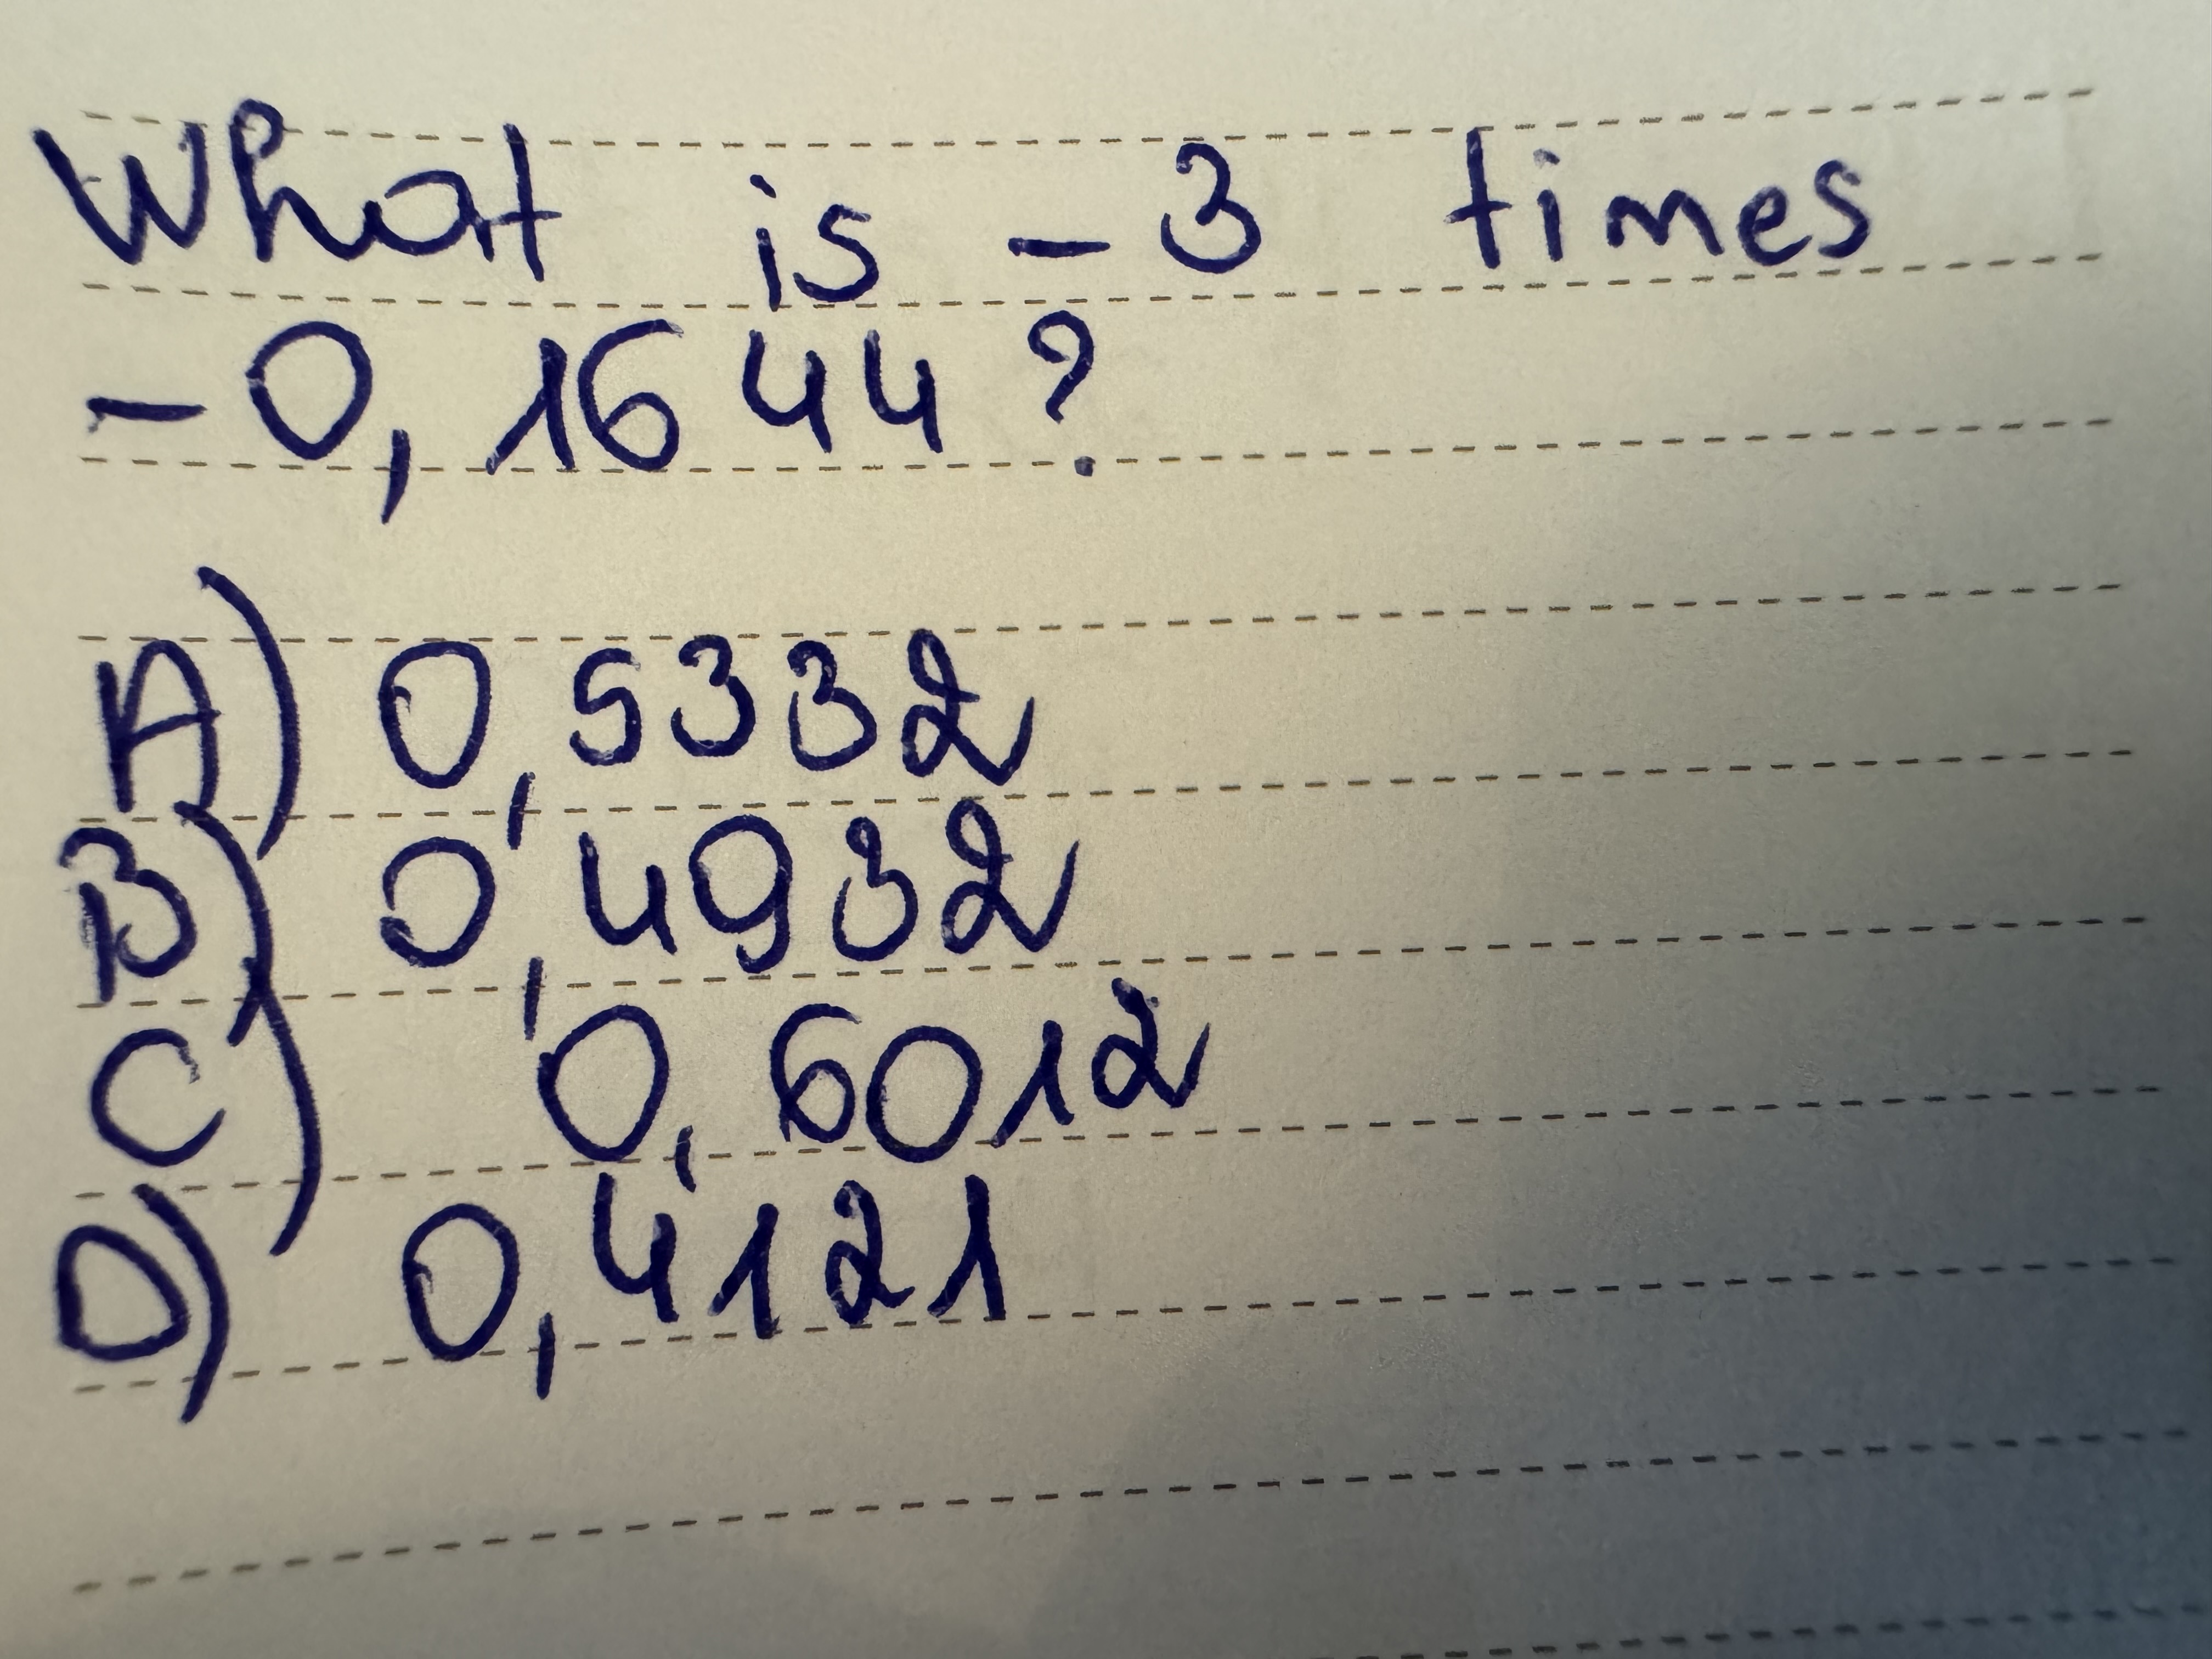 What is -3 times
-0,1644?
A) 0,5332
B) 0,4932
C) 0,6012
D) 0,4121